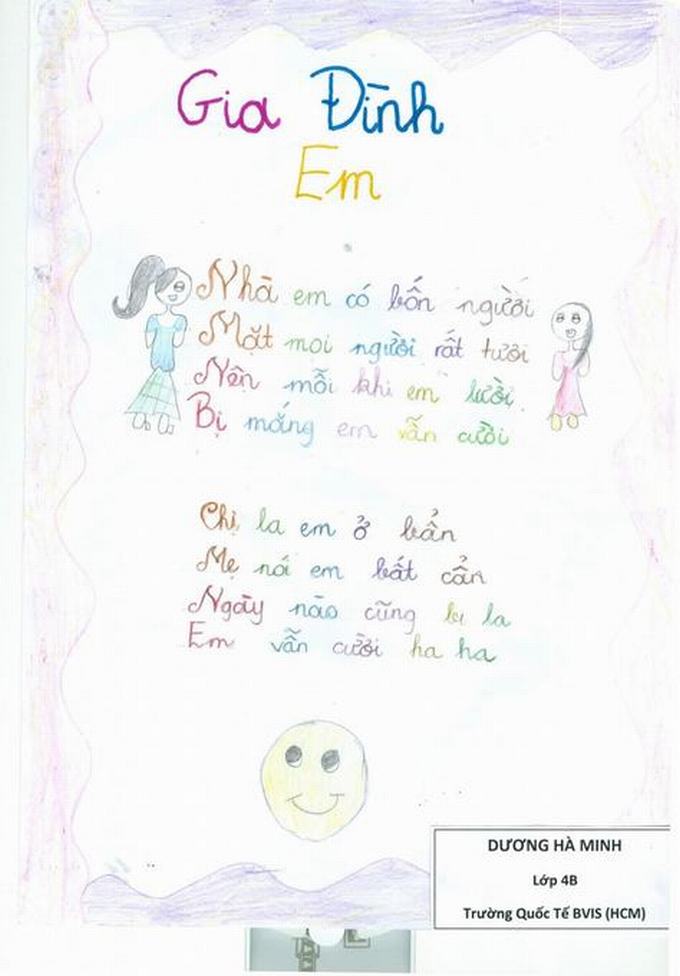 Gia Đình
Em
Nhà em có bốn người
Mặt mọi người rất tươi
Nên mỗi khi em lười
Bị mắng em vẫn cười
Chị la em ở bẩn
Mẹ nói em bất cẩn
Ngày nào cũng bị la
Em vẫn cười ha ha
DƯƠNG HÀ MINH
Lớp 4B
Trường Quốc Tế BVIS (HCM)